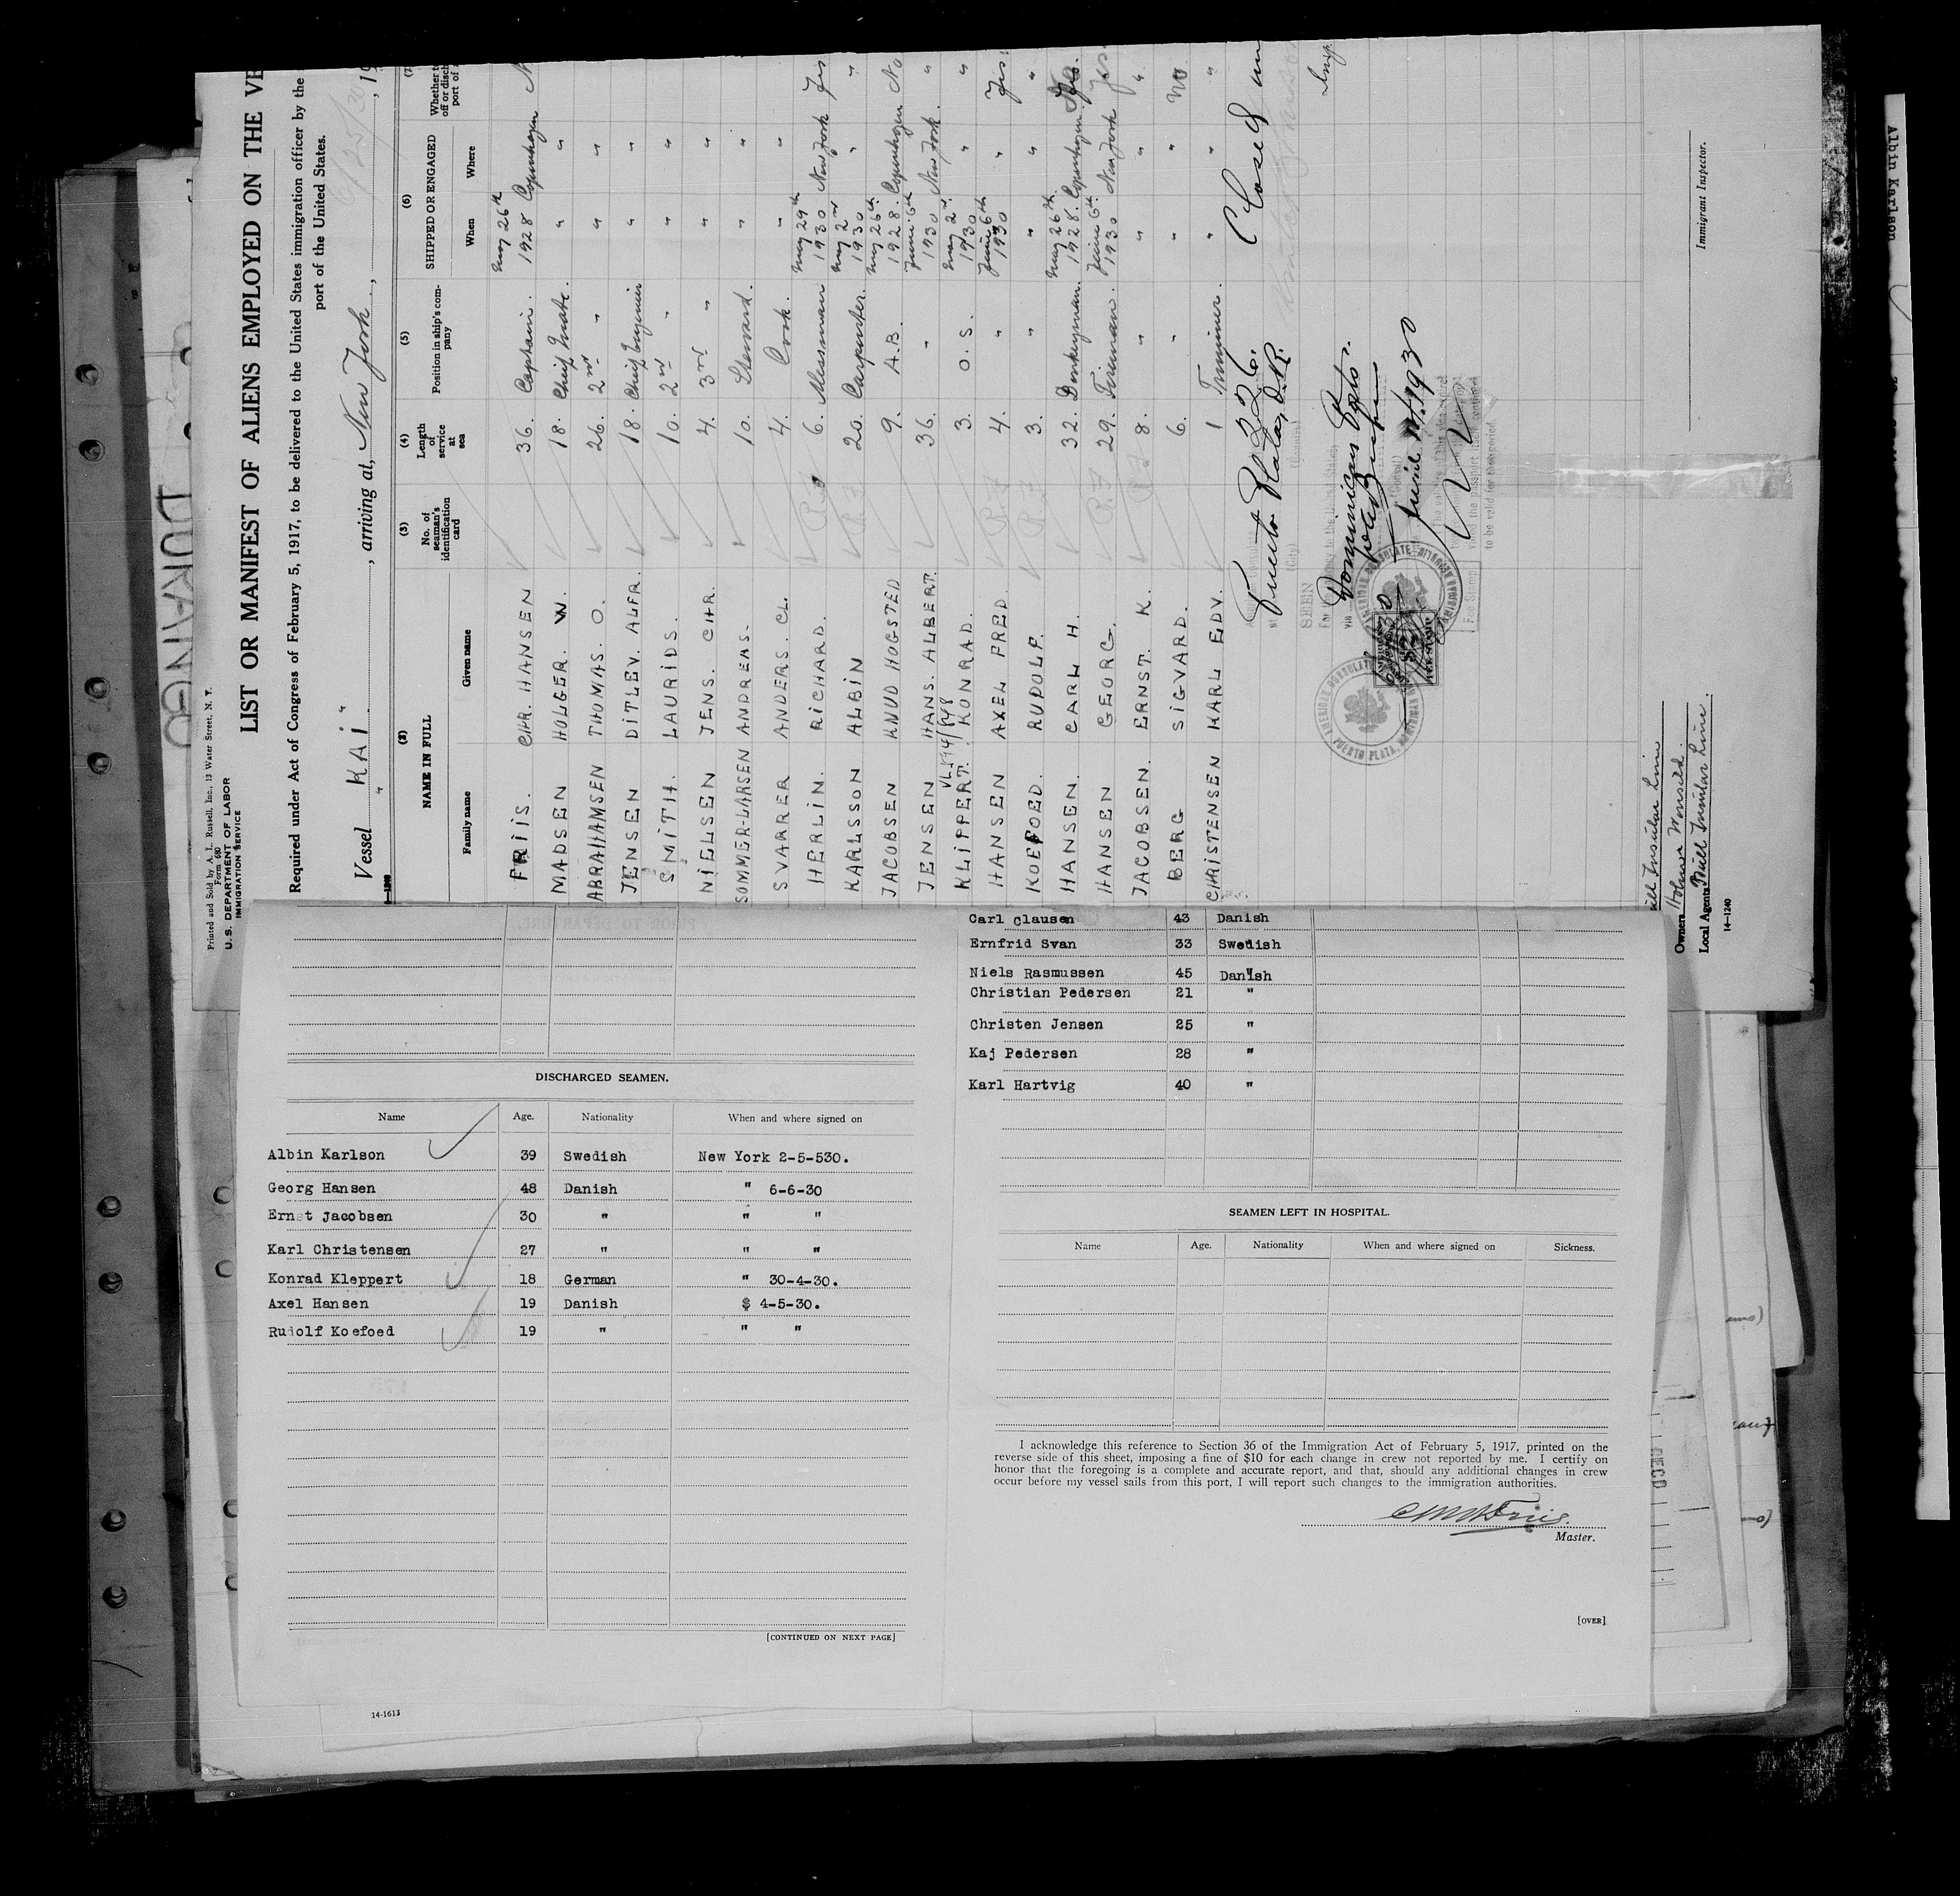 Printed and Sold by A. L. Russell, Inc., 13 Water Street, N. Y.
Form 680
U. S. DEPARTMENT OF LABOR
IMMIGRATION SERVICE
LIST OR MANIFEST OF ALIENS EMPLOYED ON THE VE
Required under Act of Congress of February 5, 1917, to be delivered to the United States immigration officer by the
port of the United States.
6/25/30
Vessel "KAI", arriving at, New York, 19
(2) (3) (4) (5) (6) (7)
NAME IN FULL No. of seaman's identification card Length of service at sea Position in ship's company SHIPPED OR ENGAGED Whether t off or disch port of a
Family name Given name When Where
FRIIS. CHR. HANSEN 36. Captain. May 26th 1928 Copenhagen N
MADSEN HOLGER. W. 18. Chief Mate. " "
ABRAHAMSEN THOMAS. O. 26. 2nd " " "
JENSEN DITLEV. ALFR. 18. Chief Engineer " "
SMITH. LAURIDS. 10. 2nd " " "
NIELSEN JENS. CHR. 4. 3rd " " "
SOMMER-LARSEN ANDREAS. 10. Steward. " "
SVARRER ANDERS. CL. 4. Cook. " "
HERLIN. RICHARD. 6. Messman May 29th 1930 New York Yes
KARLSSON ALBIN 20. Carpenter. May 2nd 1930 " "
JACOBSEN KNUD HOGSTED 9. A.B. May 26th 1928. Copenhagen No
JENSEN HANS. ALBERT. 36. " June 6th 1930 New York. "
KLIPPERT. KONRAD. 3. O.S. May 2nd 1930 " "
HANSEN AXEL FRED. 4. " June 6th 1930 " Yes
KOEFOED. RUDOLF. 3. " " " "
HANSEN. CARL H. 32. Donkeyman. May 26th 1928. Copenhagen.
HANSEN GEORG. 29. Fireman. June 6th 1930 New York Yes
JACOBSEN. ERNST. K. 8. " " " "
BERG SIGVARD. 6. " " " No
CHRISTENSEN KARL EDV. 1 Trimmer. " " "
Closed
Puerto Plata, D.R.
SEEN
Dominican Ports.
1930
AMERICAN CONSULATE
PUERTO PLATA, DOMINICAN
Fee Stamp
to be valid for the period.
Immigrant Inspector.
Bull Insular Line
Owners
Local Agents Bull Insular Line.
14—1240
Carl Clausen 43 Danish
Ernfrid Svan 33 Swedish
Niels Rasmussen 45 Danish
Christian Pedersen 21 "
Christen Jensen 25 "
Kaj Pedersen 28 "
Karl Hartvig 40 "
DISCHARGED SEAMEN.
Name Age. Nationality When and where signed on
Albin Karlson 39 Swedish New York 2-5-530.
Georg Hansen 48 Danish " 6-6-30
Ernst Jacobsen 30 " " "
Karl Christensen 27 " " "
Konrad Kleppert 18 German " 30-4-30.
Axel Hansen 19 Danish $ 4-5-30.
Rudolf Koefoed 19 " " "
[CONTINUED ON NEXT PAGE]
14-1613
SEAMEN LEFT IN HOSPITAL.
Name Age. Nationality When and where signed on Sickness.
I acknowledge this reference to Section 36 of the Immigration Act of February 5, 1917, printed on the
reverse side of this sheet, imposing a fine of $10 for each change in crew not reported by me. I certify on
honor that the foregoing is a complete and accurate report, and that, should any additional changes in crew
occur before my vessel sails from this port, I will report such changes to the immigration authorities.
Master.
[OVER]
Albin Karlson